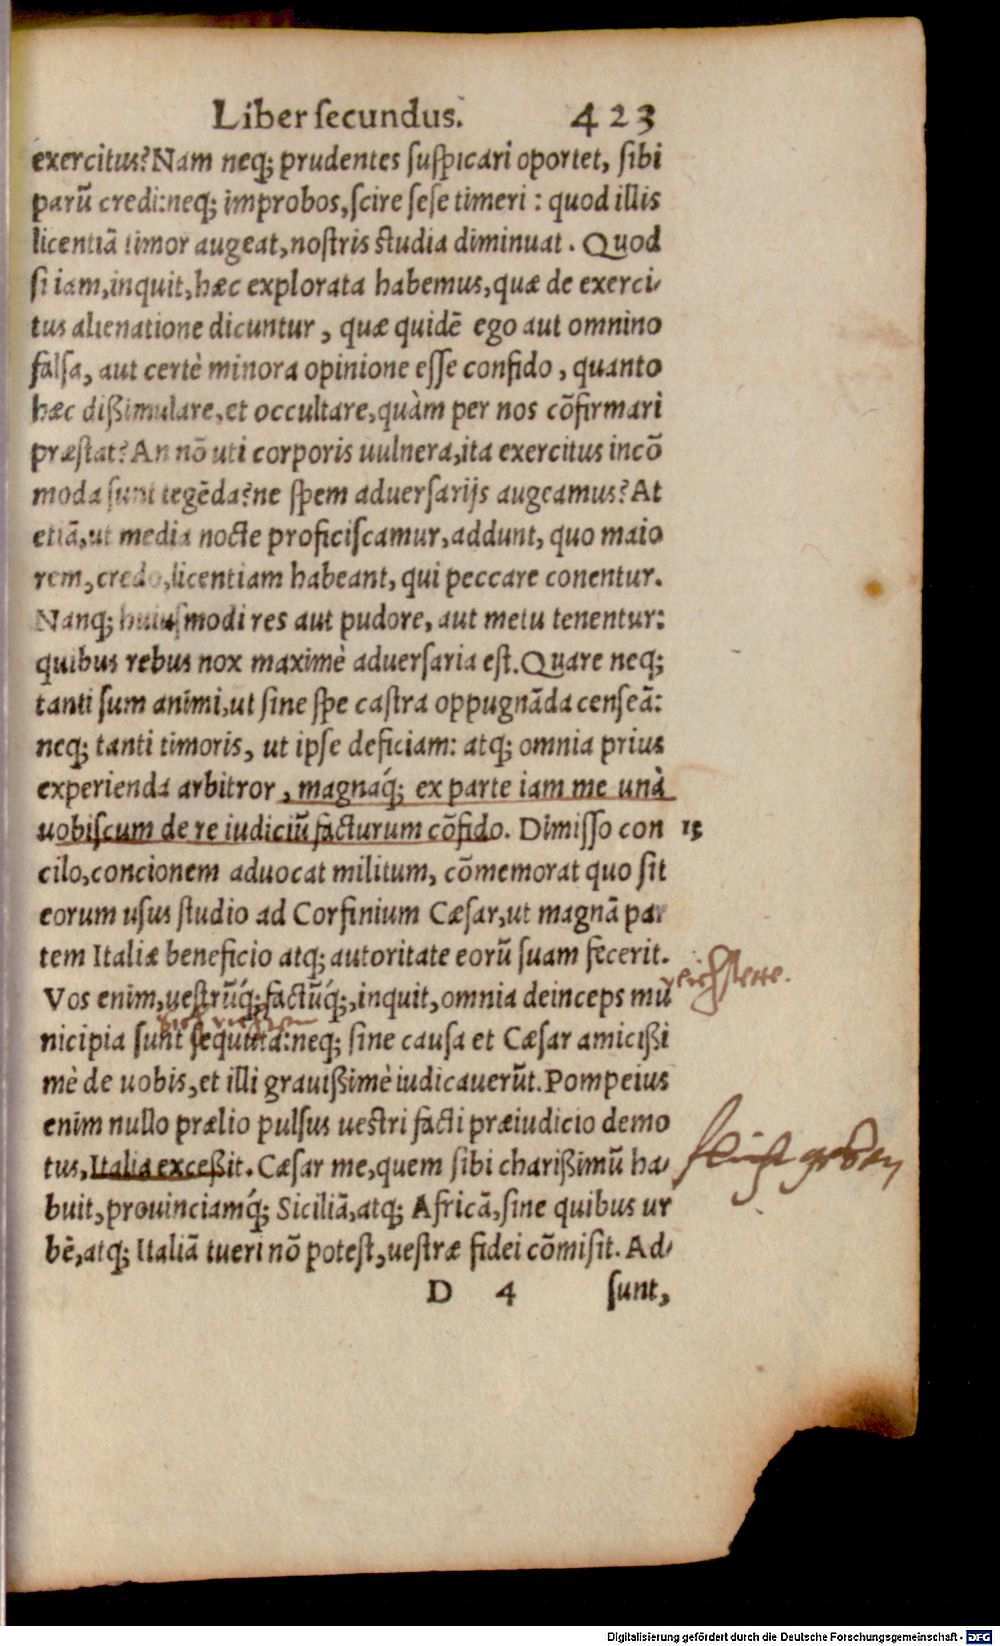 Liber ſecundus. 423
exercitus? Nam neq; prudentes ſuſpicari oportet, ſibi
parū credi: neq; improbos, ſcire ſeſe timeri : quod illis
licentiā timor augeat, noſtris ſtudia diminuat. Quod
ſi iam, inquit, hæc explorata habemus, quæ de exerci-
tus alienatione dicuntur, quæ quidē ego aut omnino
falſa, aut certè minora opinione eſſe confido, quanto
hæc dißimulare, et occultare, quàm per nos cōfirmari
præſtat? An nō uti corporis uulnera, ita exercitus incō
moda ſunt tegēda? ne ſpem aduerſarijs augeamus? At
etiā, ut media nocte proficiſcamur, addunt, quo maio
rem, credo, licentiam habeant, qui peccare conentur.
Nanq; huiuſmodi res aut pudore, aut metu tenentur:
quibus rebus nox maximè aduerſaria eſt. Quare neq;
tanti ſum animi, ut ſine ſpe caſtra oppugnāda cenſeā:
neq; tanti timoris, ut ipſe deficiam: atq; omnia prius
experienda arbitror, magnaq́; ex parte iam me unà
uobiſcum de re iudiciū facturum cōfido. Dimiſſo con 15
cilo, concionem aduocat militum, cōmemorat quo ſit
eorum uſus ſtudio ad Corfinium Cæſar, ut magnā par
tem Italiæ beneficio atq; autoritate eorū ſuam fecerit.
Vos enim, ueſtrūq́; factūq́;, inquit, omnia deinceps mu
nicipia ſunt ſequuta: neq; ſine cauſa et Cæſar amicißi
mè de uobis, et illi grauißimè iudicauerūt. Pompeius
enim nullo prælio pulſus ueſtri facti præiudicio demo
tus, Italia exceßit. Cæſar me, quem ſibi charißimū ha-
buit, prouinciamq́; Siciliā, atq; Africā, ſine quibus ur
bē, atq; Italiā tueri nō poteſt, ueſtræ fidei cōmiſit. Ad-
D 4 ſunt,
Digitalisierung gefördert durch die Deutsche Forschungsgemeinschaft - DFG